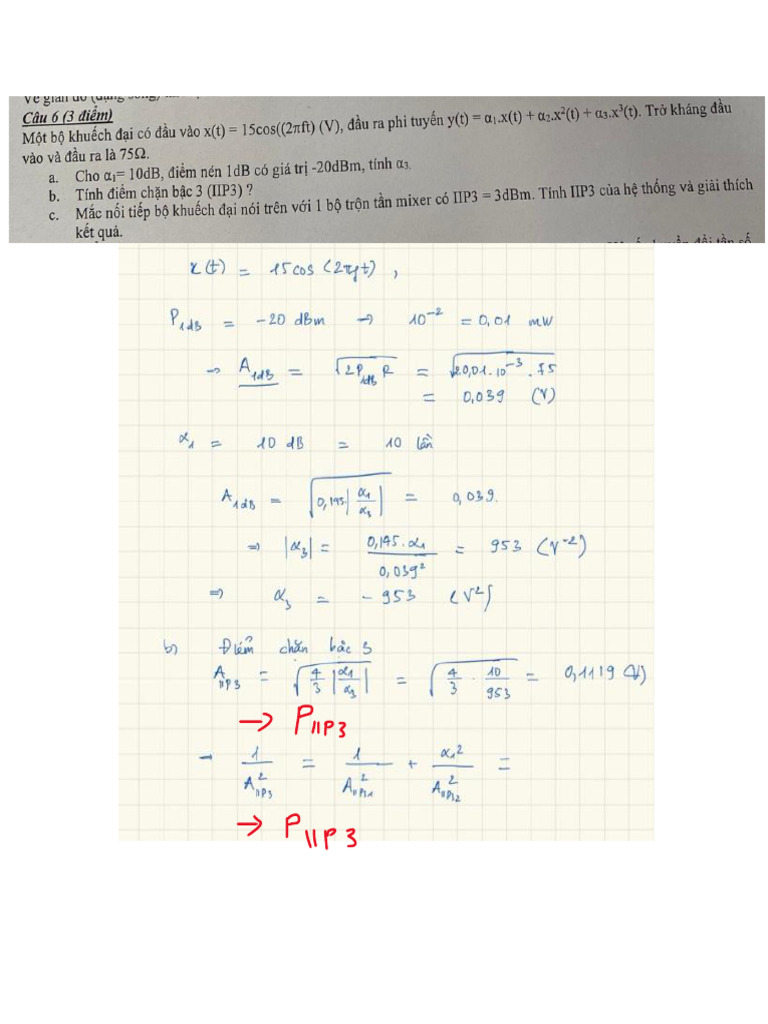 Vẽ giản đồ (dạng sóng)
Câu 6 (3 điểm)
Một bộ khuếch đại có đầu vào x(t) = 15cos((2πft) (V), đầu ra phi tuyến y(t) = α₁.x(t) + α₂.x²(t) + α₃.x³(t). Trở kháng đầu
vào và đầu ra là 75Ω.
a. Cho α₁= 10dB, điểm nén 1dB có giá trị -20dBm, tính α₃.
b. Tính điểm chặn bậc 3 (IIP3) ?
c. Mắc nối tiếp bộ khuếch đại nói trên với 1 bộ trộn tần mixer có IIP3 = 3dBm. Tính IIP3 của hệ thống và giải thích
kết quả.
x(t) = 15cos (2πft) ,
P1dB = -20 dBm → 10⁻² = 0,01 mW
→ A1dB = √(2P1dB R) = √(2.0,01.10⁻³.75)
= 0,039 (V)
α₁ = 10 dB = 10 lần
A1dB = √(0,145|α₁/α₃|) = 0,039.
⇒ |α₃| = 0,145.α₁/0,039² = 953 (V⁻²)
⇒ α₃ = -953 (V²)
b) Điểm chặn bậc 3
AIIP3 = √(4/3 |α₁/α₃|) = √(4/3 . 10/953) = 0,1119 (V)
→ PIIP3
→ 1/A²IIP3 = 1/A²IIP31 + α₁²/A²IIP32 =
→ PIIP3